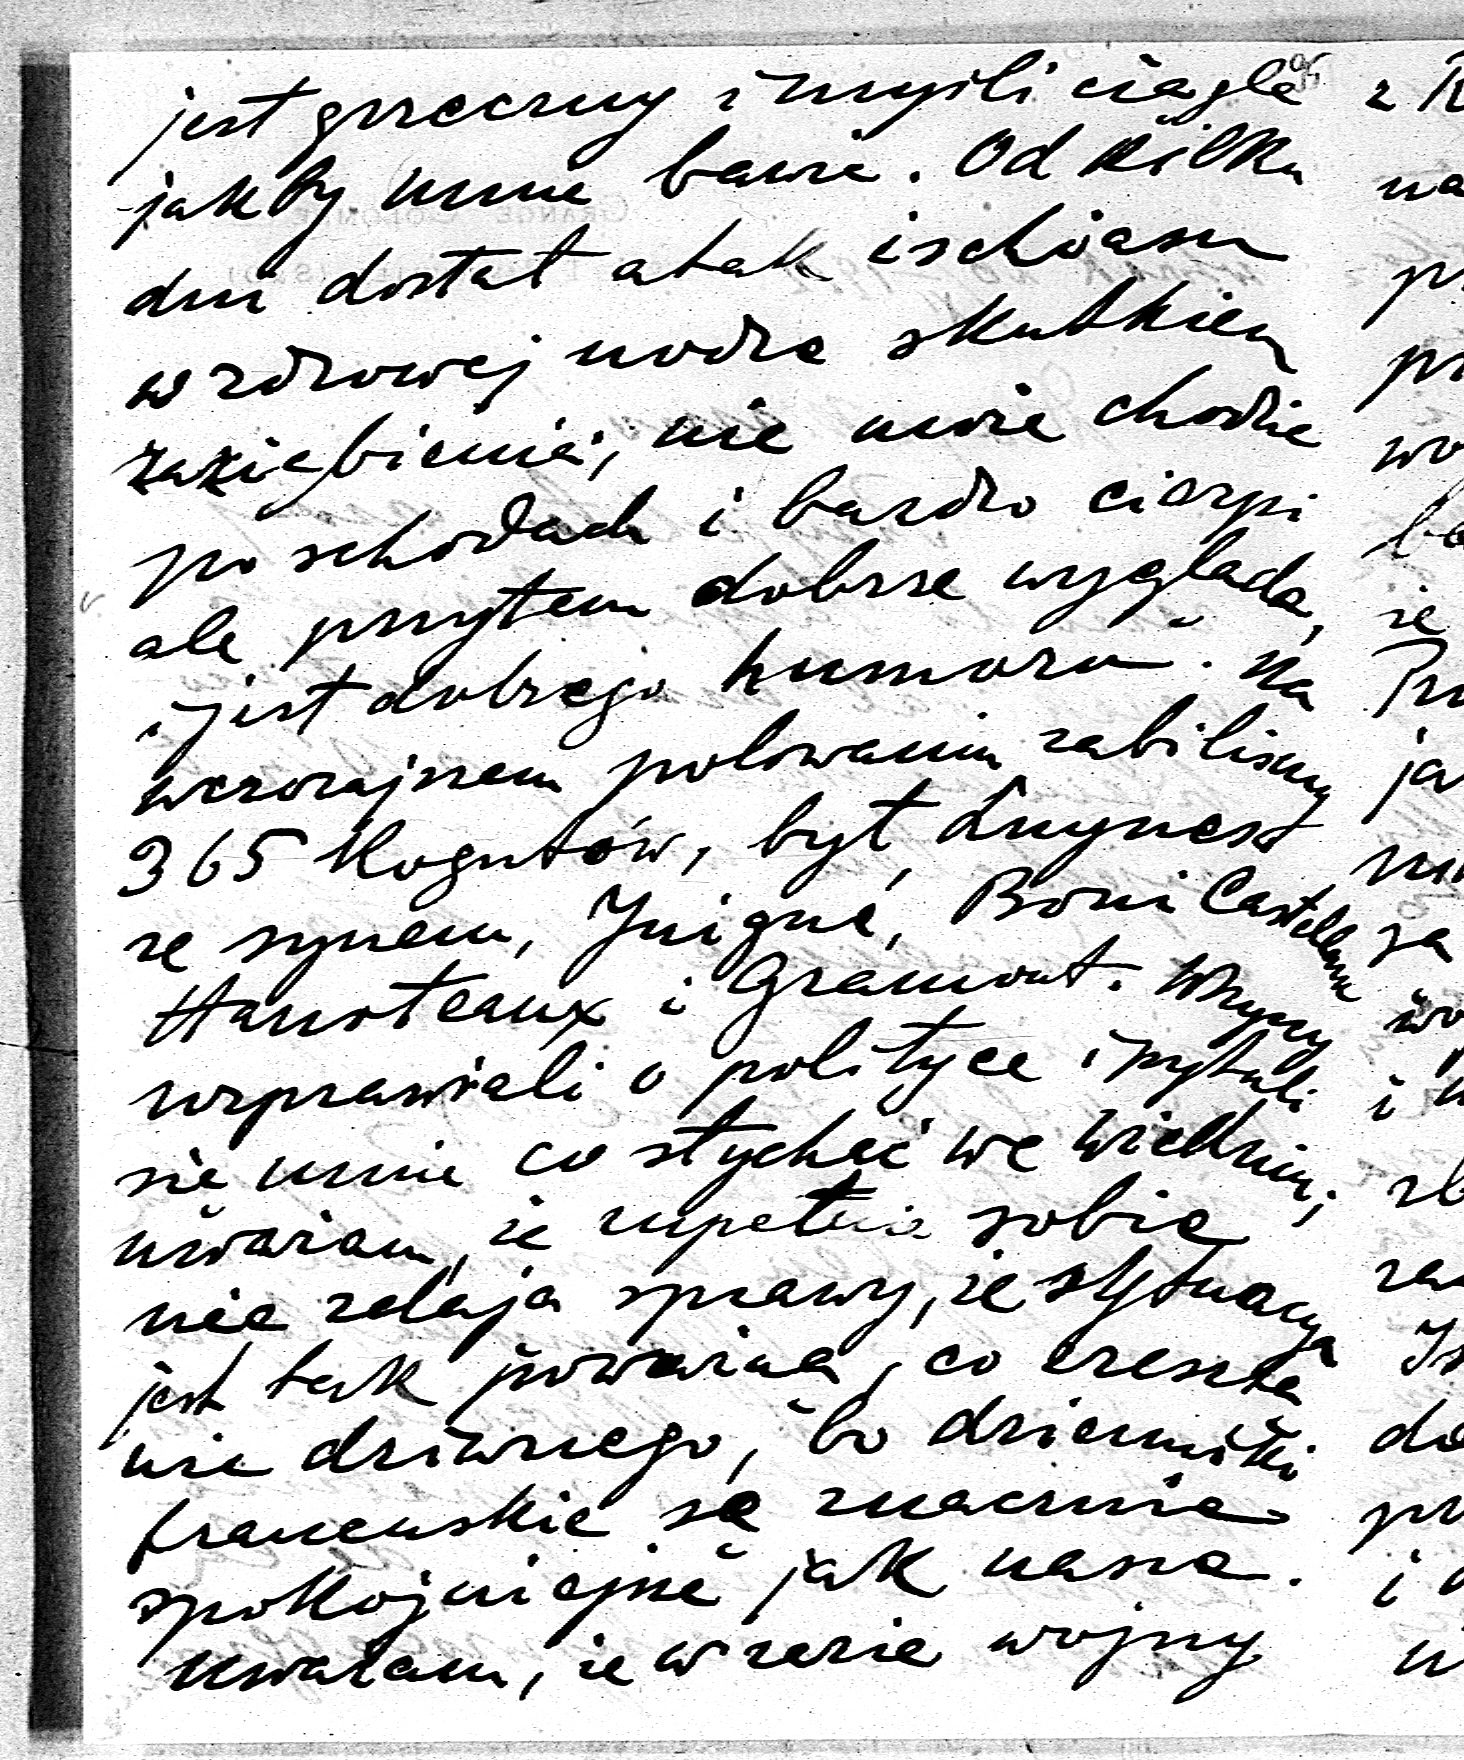 jest grzeczny i myśli ciągle
jakby mnie bawić. Od kilku
dni dostał atak ischiasu
w zdrowej nodze skutkiem
zaziębienia, nie może chodzić
po schodach i bardzo cierpi
ale przytem dobrze wygląda,
i jest dobrego humoru. Na
wczorajszem polowaniu zabiliśmy
365 kogutów, był Luynes
ze synem, Boni Castellane
Hanoteaux i Gramont. Wszyscy
rozprawiali o polityce i pytali
się mnie co słychać we Wiedniu;
uważam, że zupełnie sobie
nie zdają sprawy, że sytuacya
jest tak poważna, co zresztą
nic dziwnego, bo dzienniki
francuskie są znacznie
spokojniejsze jak nasze.
Uważam, że w razie wojny